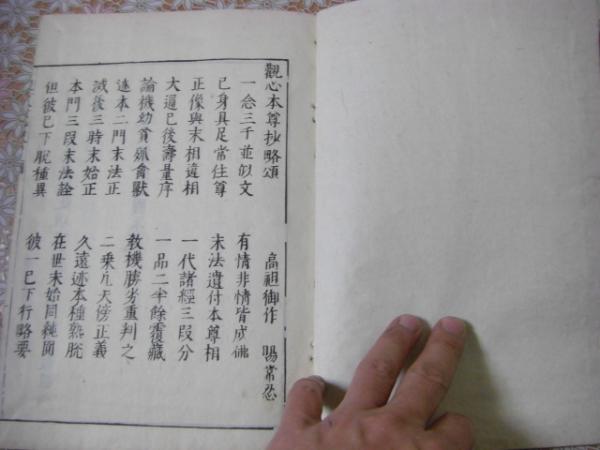 觀心本尊抄略頌 高祖御作 賜常忍
一念三千並似文 有情非情皆成佛
已身具足常住尊 末法遺付本尊相
正像與末相違相 一代諸經三段分
大通已後壽量序 一品二半餘覆藏
論機幼貧孤禽獸 教機勝劣重判之
迹本二門末法正 二乘凡天傍正義
滅後三時末始正 久遠迹本種熟脫
本門三段末法詮 在世末始同純圓
但彼已下脫種異 彼一已下行略要